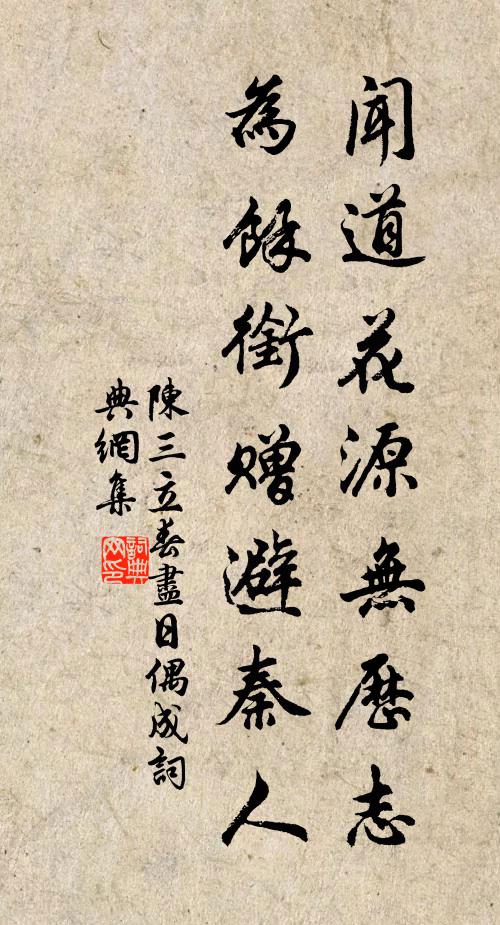 聞道花源無歷志
為餘銜贈避秦人
陳三立春盡日偶成詞
典網集
詞典
网印